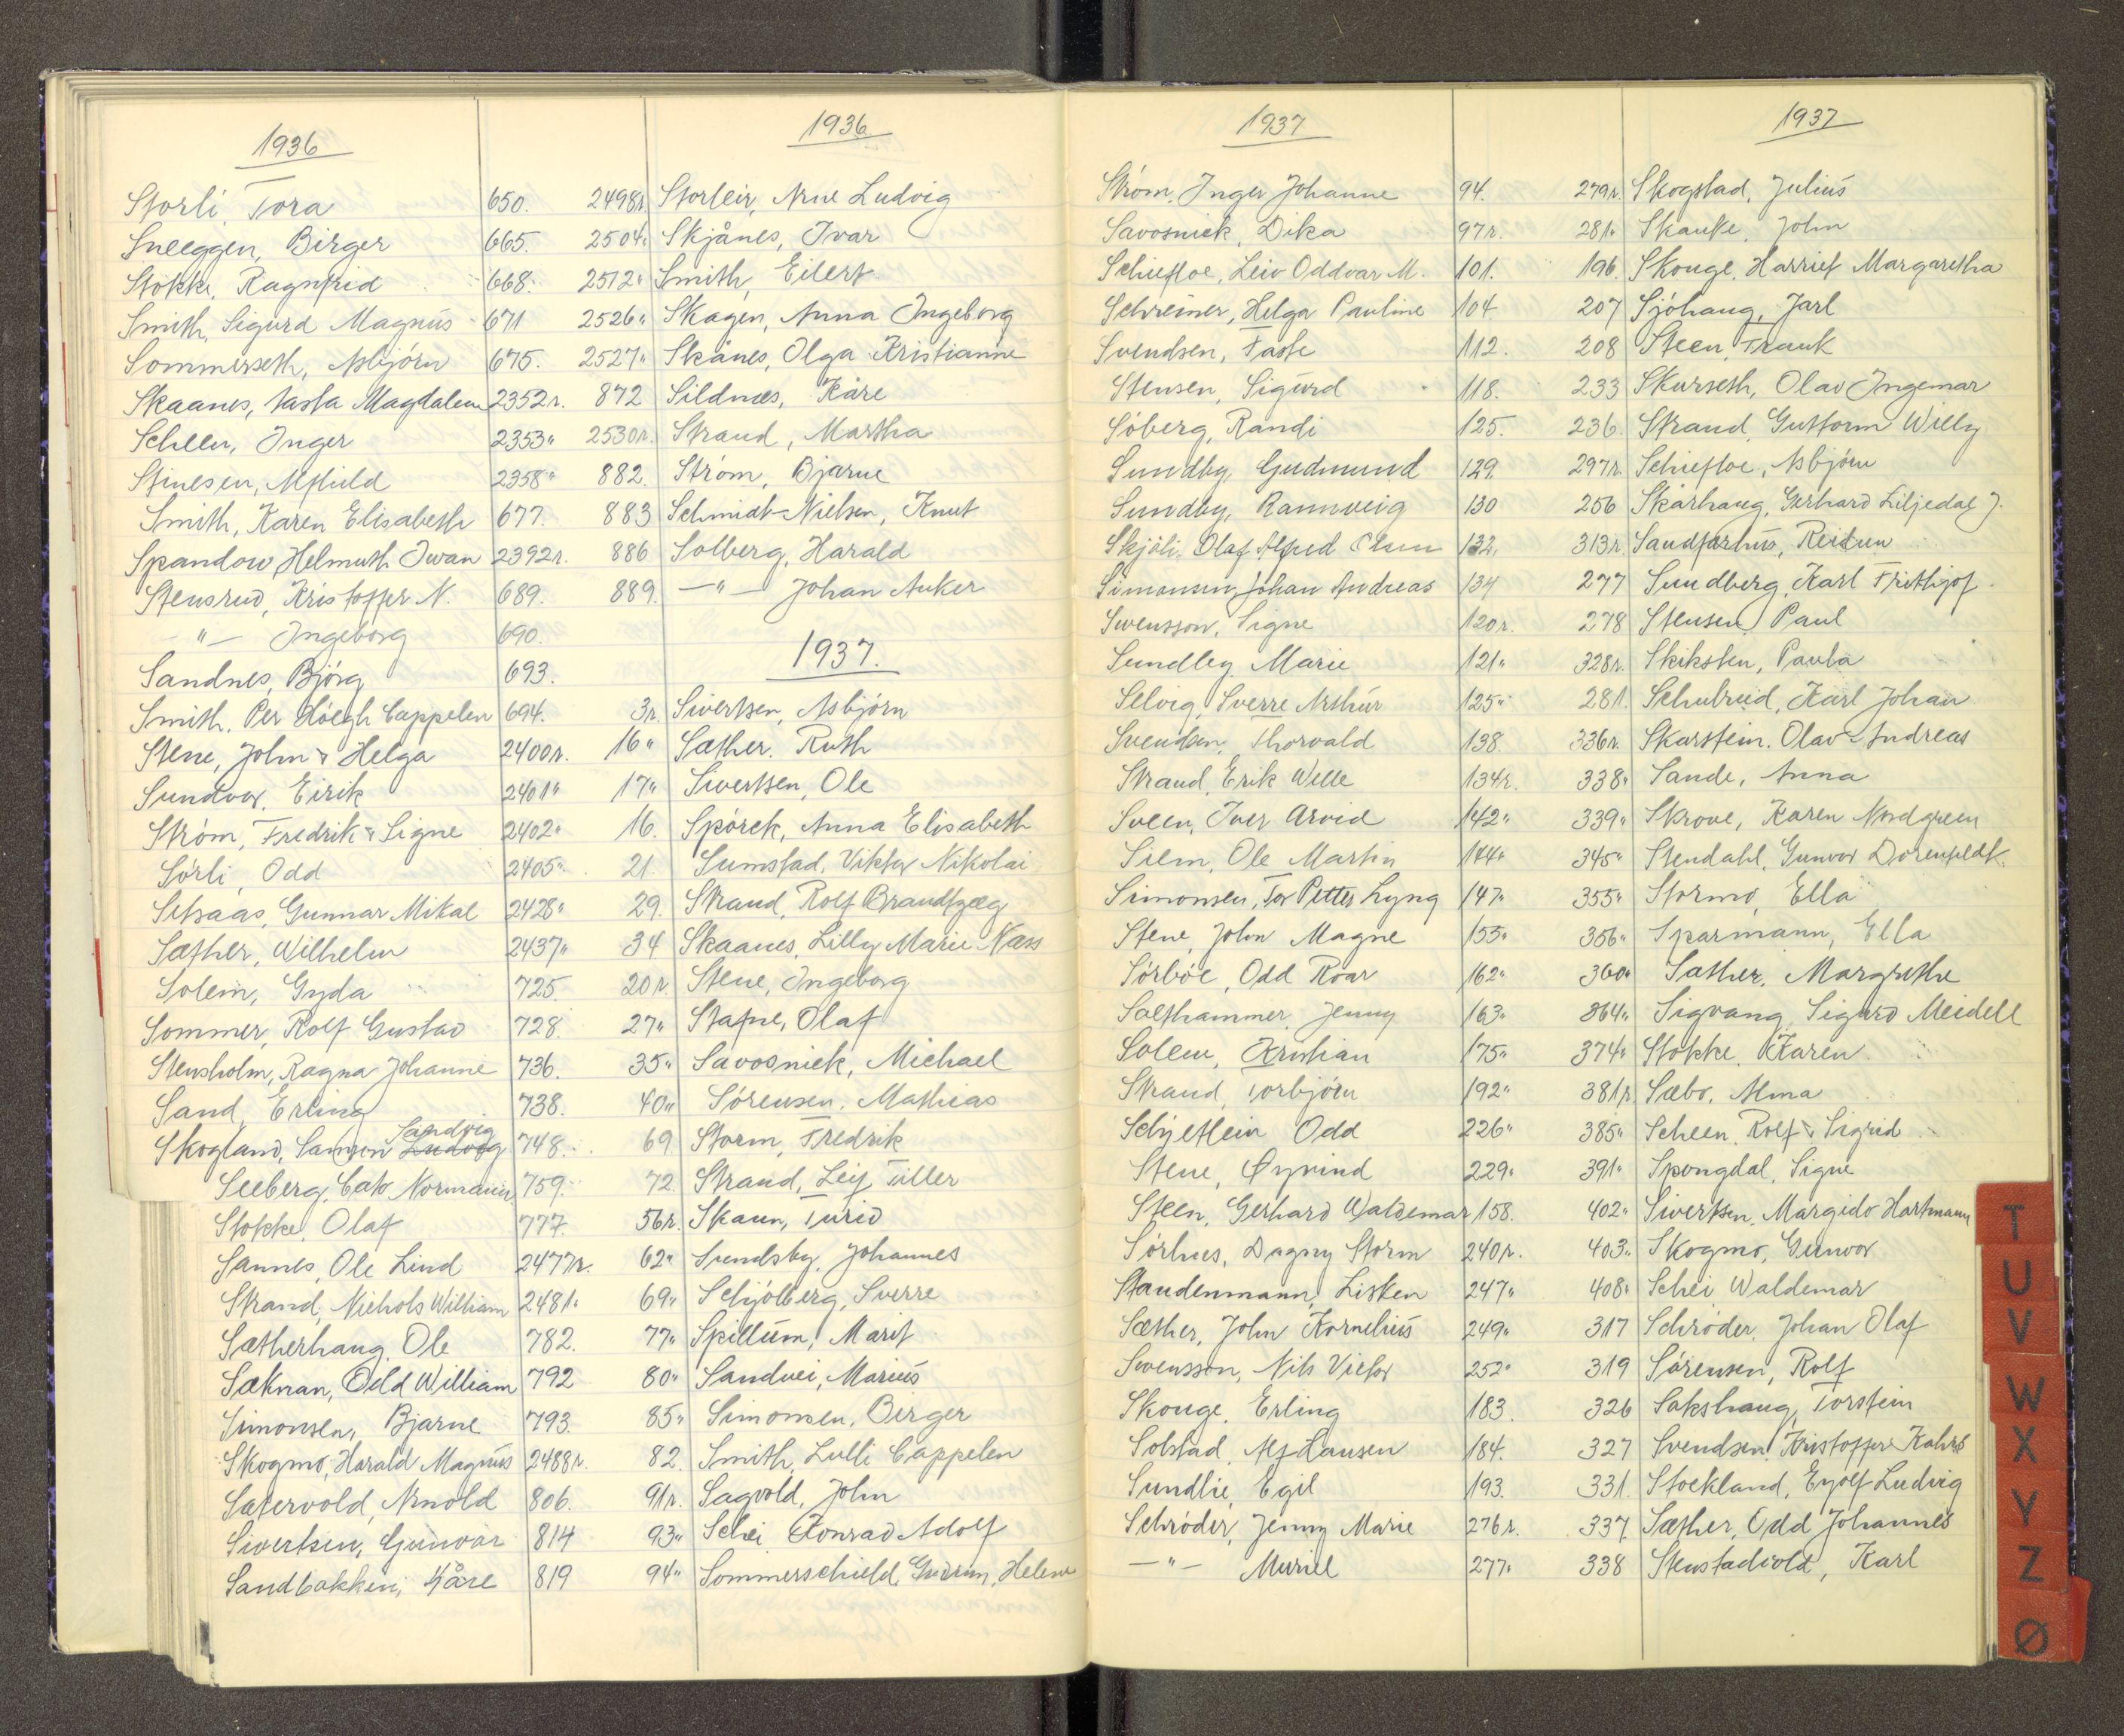 1936
Storli, Tora 650.
Sneeggen, Birger 665.
Stokke, Ragnfrid 668.
Smith, Sigurd Magnus 671
Sommerseth, Asbjörn 675.
Skaanes, Magdalene 2352r.
Schller, Inger 2353"
Stinesen, Alfhild 2358"
Smith, Karen Elisabeth 677.
Spandow, Helmuth Iwan 2392r.
Stensrud, Kristoffer N. 689.
—"— Ingeborg 690.
Sandnes, Björg 693.
Smith, Per Höegh Cappelen 694.
Stene, John & Helga 2400r.
Sundvor, Eirik 2401"
Ström, Fredrik & Signe 2402"
Sörli, Odd 2405"
Setsaas, Gunnar Mikal 2428"
Sæther, Wilhelm 2437"
Solem, Gyda 725.
Sommer, Rolf Gustav 728
Stensholm, Ragna Johanne 736.
Sand, Erling 738.
Sandvig
Skogland, Ludvig 748.
Seeberg, Cato Normann 759.
Stokke, Olaf 777.
Sannes, Ole Lind 2477r.
Strand, Nichols William 2481"
Sætherhaug, Ole 782.
Sæknan, Odd William 792
Simonsen, Bjarne 793.
Skogmo, Harald Magnus 2488r.
Sætervold, Arnold 806.
Sivertsen, Gunvor 814
Sandbakken, Kåre 819
1936
2498r. Storleir, Arne Ludvig
2504" Skjånes, Ivar
2512" Smith, Eilert
2526" Skagen, Anna Ingeborg
2527" Skånes, Olga Kristianne
872 Sildnæs, Kåre
2530r. Strand, Martha
882. Ström, Bjarne
883 Schmidt-Nielsen, Knut
886 Solberg, Harald
889. —"— Johan Anker
1937.
3r. Sivertsen, Asbjörn
16" Sæther, Ruth
17" Sivertsen, Ole
16. Spörck, Anna Elisabeth
21. Sumstad, Viktor Nikolai
29. Strand, Rolf Brandtzæg
34 Skaanes, Lilly Marie Næss
20r. Stene, Ingeborg
27" Stafne, Olaf
35" Savosnick, Michael
40" Sörensen, Mathias
69 Storm, Fredrik
72. Strand, Leif Tiller
56r. Skaun, Turid
62" Sundsby, Johannes
69" Schjölberg, Sverre
77" Spillum, Marit
80" Sandvei, Marius
85" Simonsen, Birger
82. Smith, Lulli Cappelen
91r. Sagvold, John
93" Schei, Konrad Adolf
94" Sommerschield, Gudrun, Helene
1937
Ström, Inger Johanne 94.
Savosnick, Dika 97r.
Schiefloe, Leiv Oddvar M. 101.
Schreiner, Helga Pauline 104
Svendsen, Faste 112.
Stensen, Sigurd 118.
Söberg, Randi 125.
Sundby, Gudmund 129.
Sundby, Rannveig 130
Skjöli, Olaf Alfred Olsen 132.
Simonsen, Johan Andreas 134
Swensson, Signe 120r.
Sundley, Marie 121"
Selvig, Sverre Arthur 125"
Svendsen, Thorvald 138.
Strand, Erik Wille 134r.
Sveen, Iver Arvid 142"
Siem, Ole Martin 144"
Simonsen, Tor Petter Lyng 147"
Stene, John Magne 155"
Sörböe, Odd Roar 162"
Salthammer, Jenny 163"
Solem, Kristian 175"
Strand, Torbjörn 192"
Schjetlein Odd 226"
Stene, Øyvind 229"
Steen, Gerhard Waldemar 158.
Sörhus, Dagny Storm 240r.
Staudenmann, Lisken 247"
Sæther, John Kornelius 249"
Swensson, Nils Victor 252"
Skouge, Erling 183.
Solstad, Alf Hansen 184.
Sundlie, Egil 193.
Schröder, Jenny Marie 276r.
—"— Muriel 277"
1937
279r. Skogstad, Julius
281" Skauke, John
196. Skouge, Harriet Margaretha
207 Sjöhaug, Jarl
208 Steen, Frank
233 Skurseth, Olav Ingemar
236 Strand, Guttorm Willy
297r. Schiefloe, Asbjörn
256 Skårhaug, Gerhard Liljedal J.
313r. Sandfærhus, Reidun
277 Sundberg, Karl Frithjof
278 Stensen, Paul
328r. Skiksten, Paula
281. Schulrud, Karl Johan
336r. Skarstein, Olav Andreas
338" Sande, Anna
339" Skrove, Karen Nordgreen
345" Stendahl, Gunvor Dorenfeldt.
355" Stormo, Ella
356" Sparmann, Ella
360" Sæther, Margrethe
364" Sigvang, Sigurd Meidell
374" Stokke, Karen
381r. Sæbo, Alma
385" Scheen, Rolf & Sigrid
391" Spongdal, Signe
402" Sivertsen, Margido Hartmann
403" Skogmo, Gunvor
408" Schei Waldemar
317 Schröder, Johan Olaf
319 Sörensen, Rolf
326 Sakshaug, Torstein
327 Svendsen, Kristoffer Kahrs
331. Stockland, Eyolf Ludvig
337. Sæther, Odd Johannes
338 Stenstadvold, Karl
T
U
V
W
X
Y
Z
Ø